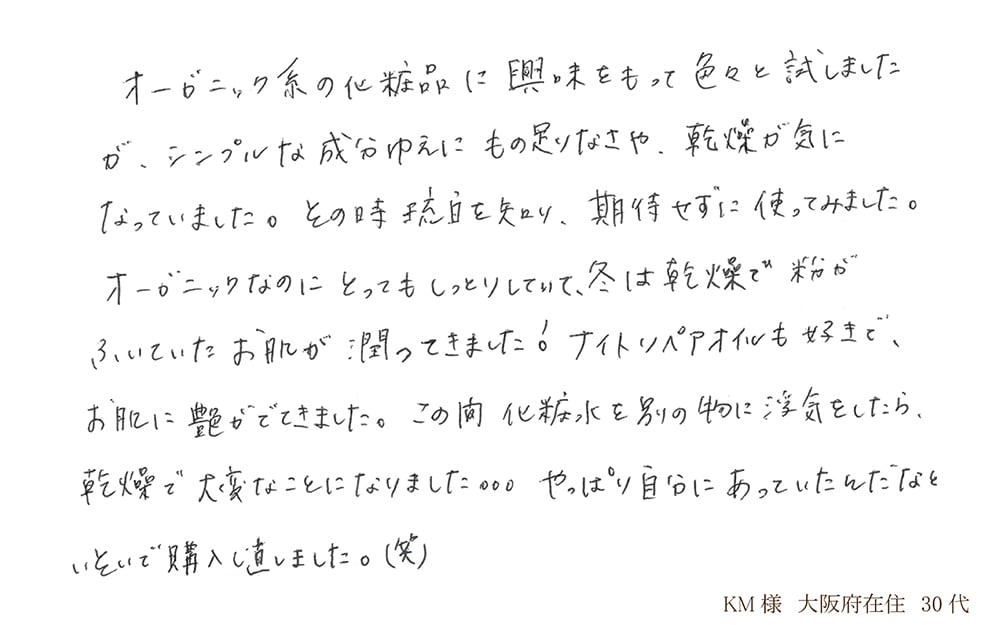 オーガニック系の化粧品に興味をもって色々と試しました
が、シンプルな成分ゆえにもの足りなさや、乾燥が気に
なっていました。その時琉白を知り、期待せずに使ってみました。
オーガニックなのにとってもしっとりしていて、冬は乾燥で粉が
ふいていたお肌が潤ってきました!ナイトリペアオイルも好きで、
お肌に艶がでてきました。この間化粧水を別の物に浮気をしたら、
乾燥で大変なことになりました… やっぱり自分にあっていたんだなと
いそいで購入し直しました。(笑)
KM様 大阪府在住 30代